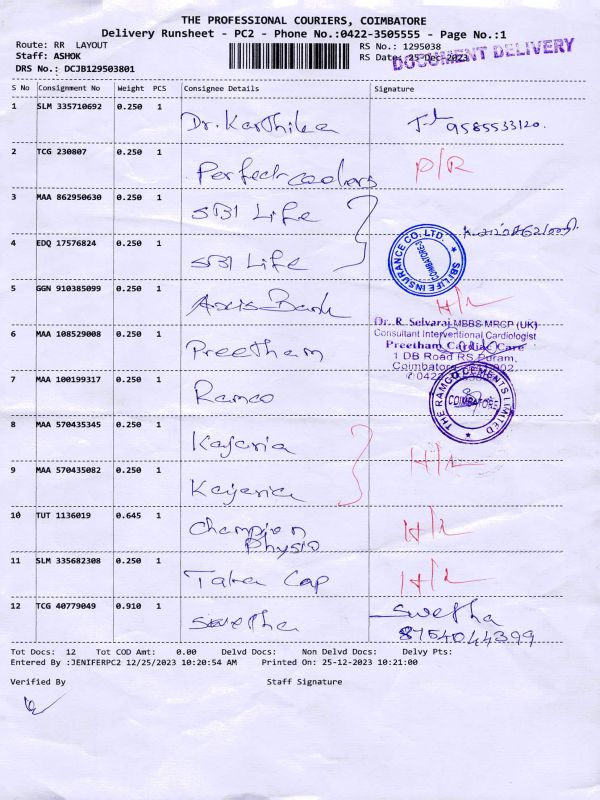 THE PROFESSIONAL COURIERS, COIMBATORE
Delivery Runsheet - PC2 - Phone No.:0422-3505555 - Page No.:1
Route: RR LAYOUT
RS No.: 1295038
Staff: ASHOK
RS Date: 25-Dec-2023
DOCUMENT DELIVERY
DRS No.: DCJB129503801
S No Consignment No Weight PCS Consignee Details Signature
1 SLM 335710692 0.250 1 Dr. Karthika 9585533120.
2 TCG 230807 0.250 1 Perfect coolers P/R
3 MAA 862950630 0.250 1 SBI Life
4 EDQ 17576824 0.250 1 SBI Life
SBI LIFE INSURANCE CO. LTD. COIMBATORE
5 GGN 910385099 0.250 1 Axis Bank H/R
Dr. R. Selvaraj MBBS MRCP (UK)
Consultant Interventional Cardiologist
6 MAA 108529008 0.250 1 Preetham Preetham Cardiac Care
1 DB Road RS Puram,
7 MAA 100199317 0.250 1 Ramco
THE RAMCO CEMENTS LIMITED COIMBATORE
8 MAA 570435345 0.250 1 Kajaria H/R
9 MAA 570435082 0.250 1 Kajaria
10 TUT 1136019 0.645 1 Champion Physio H/R
11 SLM 335682308 0.250 1 Tata Cap H/R
12 TCG 40779049 0.910 1 Swetha Swetha
8754044399
Tot Docs: 12 Tot COD Amt: 0.00 Delvd Docs: Non Delvd Docs: Delvy Pts:
Entered By :JENIFERPC2 12/25/2023 10:20:54 AM Printed On: 25-12-2023 10:21:00
Verified By Staff Signature